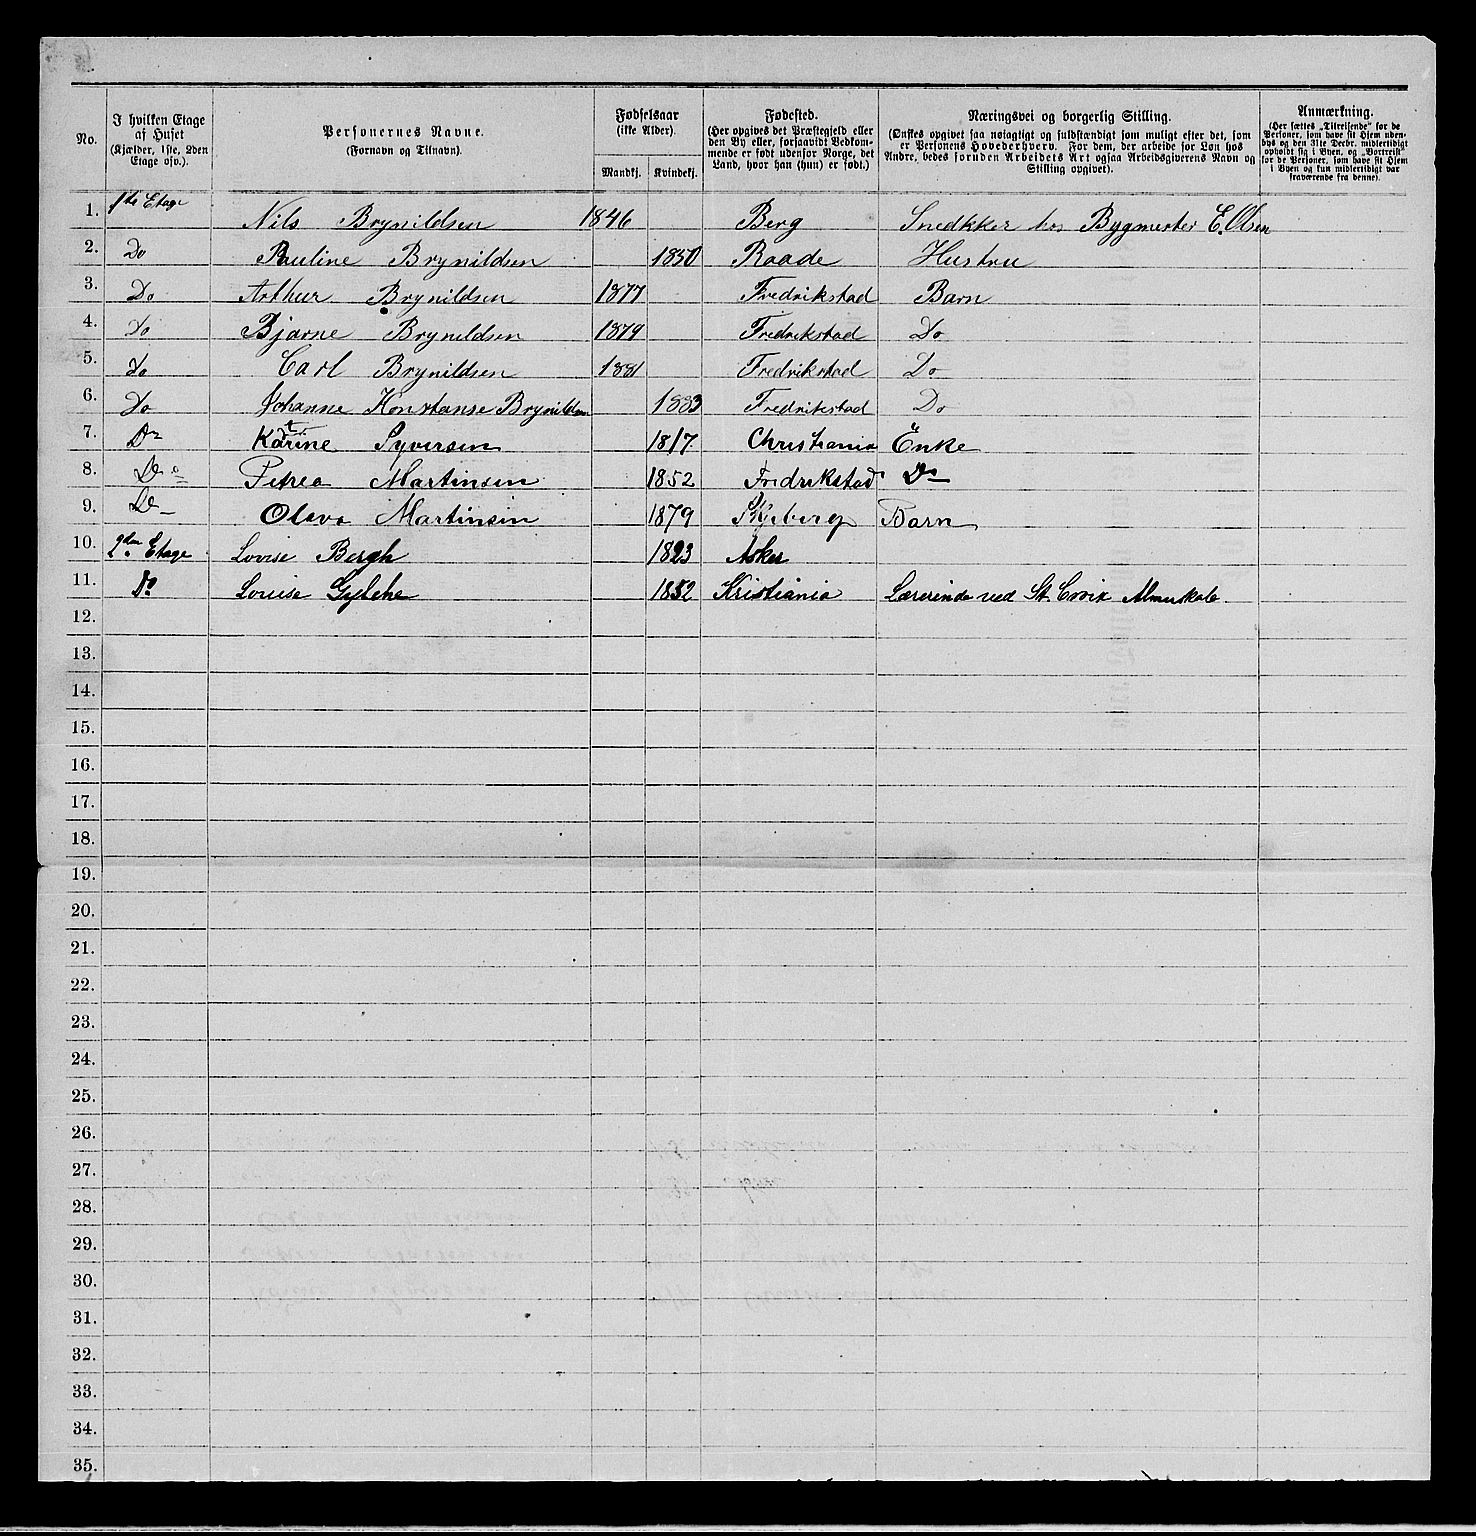 No.
I hvilken Etage af Huset (Kjælder, 1ste, 2den Etage osv.).
Personernes Navne. (Fornavn og Tilnavn).
Fødselsaar (ikke Alder).
Mandkj. Kvindekj.
Fødested. (Her opgives det Præstegjeld eller den By eller, forsaavidt Vedkommende er født udenfor Norge, det Land, hvor han (hun) er født.)
Næringsvei og borgerlig Stilling. (Ønskes opgivet saa nøiagtigt og fuldstændigt som muligt efter det, som er Personens Hovederhverv. For dem, der arbeide for Løn hos Andre, bedes foruden Arbeidets Art ogsaa Arbeidsgiverens Navn og Stilling opgivet).
Anmærkning. (Her sættes „Tilreisende“ for de Personer, som have sit Hjem udenbys og den 31te Decbr. midlertidigt opholdt sig i Byen, og „Bortreist“ for de Personer, som have sit Hjem i Byen og kun midlertidigt var fraværende fra denne).
1. 1ste Etage Nils Brynildsen 1846 Berg Snedkker hos Bygmester E. Olsen
2. Do Pauline Brynildsen 1850 Raade Hustru
3. Do Arthur Brynildsen 1877 Fredrikstad Barn
4. Do Bjarne Brynildsen 1879 Fredrikstad Do
5. Do Carl Brynildsen 1881 Fredrikstad Do
6. Do Johanne Konstanse Brynildsen 1883 Fredrikstad Do
7. Do Karine Syversen 1817 Christiania Enke
8. Do Petrea Martinsen 1852 Fredrikstad Do
9. Do Olava Martinsen 1879 Skjeberg Barn
10. 2den Etage Lovise Bergh 1823 Asker
11. Do Louise Gylche 1852 Kristiania Lærerinde ved St. Croix Almuskole
12.
13.
14.
15.
16.
17.
18.
19.
20.
21.
22.
23.
24.
25.
26.
27.
28.
29.
30.
31.
32.
33.
34.
35.